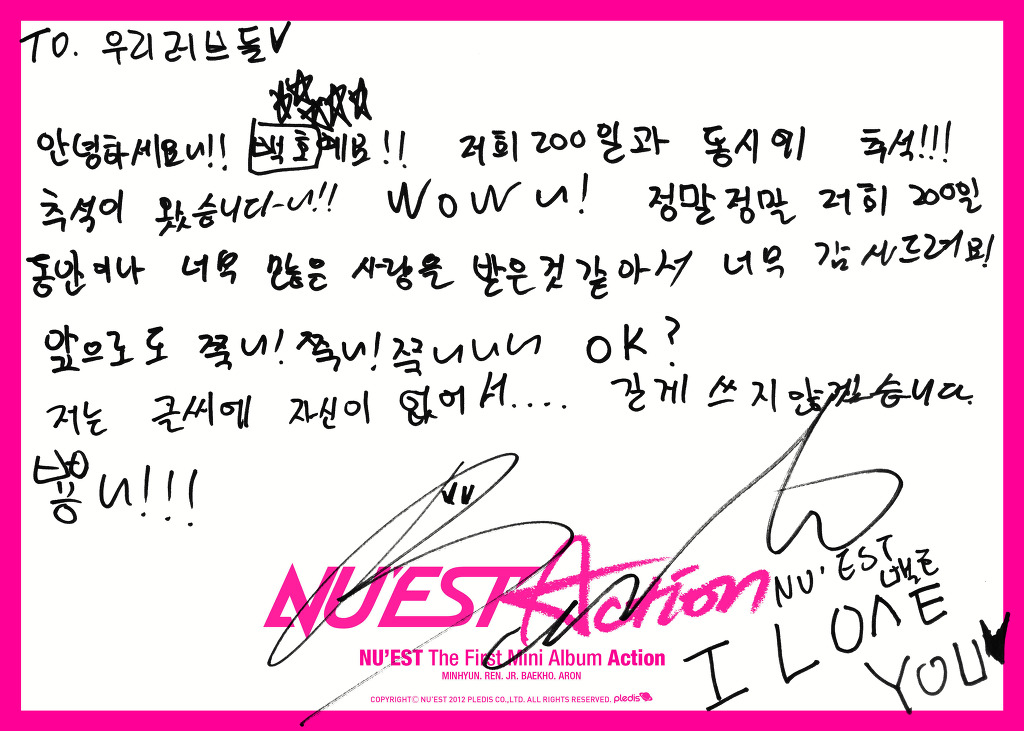 TO. 우리 러브들♥
안녕하세요~!! 백호예요!! 저희 200일과 동시에 추석!!!
추석이 왔습니다~!! WOW~! 정말정말 저희 200일
동안이나 너무 많은 사랑을 받은것 같아서 너무 감사드려요!
앞으로도 쭉~! 쭉~! 쭉~~~ OK?
저는 글씨에 자신이 없어서.... 길게 쓰지 않겠습니다.
뿅~!!!
NU'EST Action
NU'EST 백호
I LOVE
YOU♥
NU'EST The First Mini Album Action
MINHYUN. REN. JR. BAEKHO. ARON
COPYRIGHTⓒ NU'EST 2012 PLEDIS CO.,LTD. ALL RIGHTS RESERVED. pledis